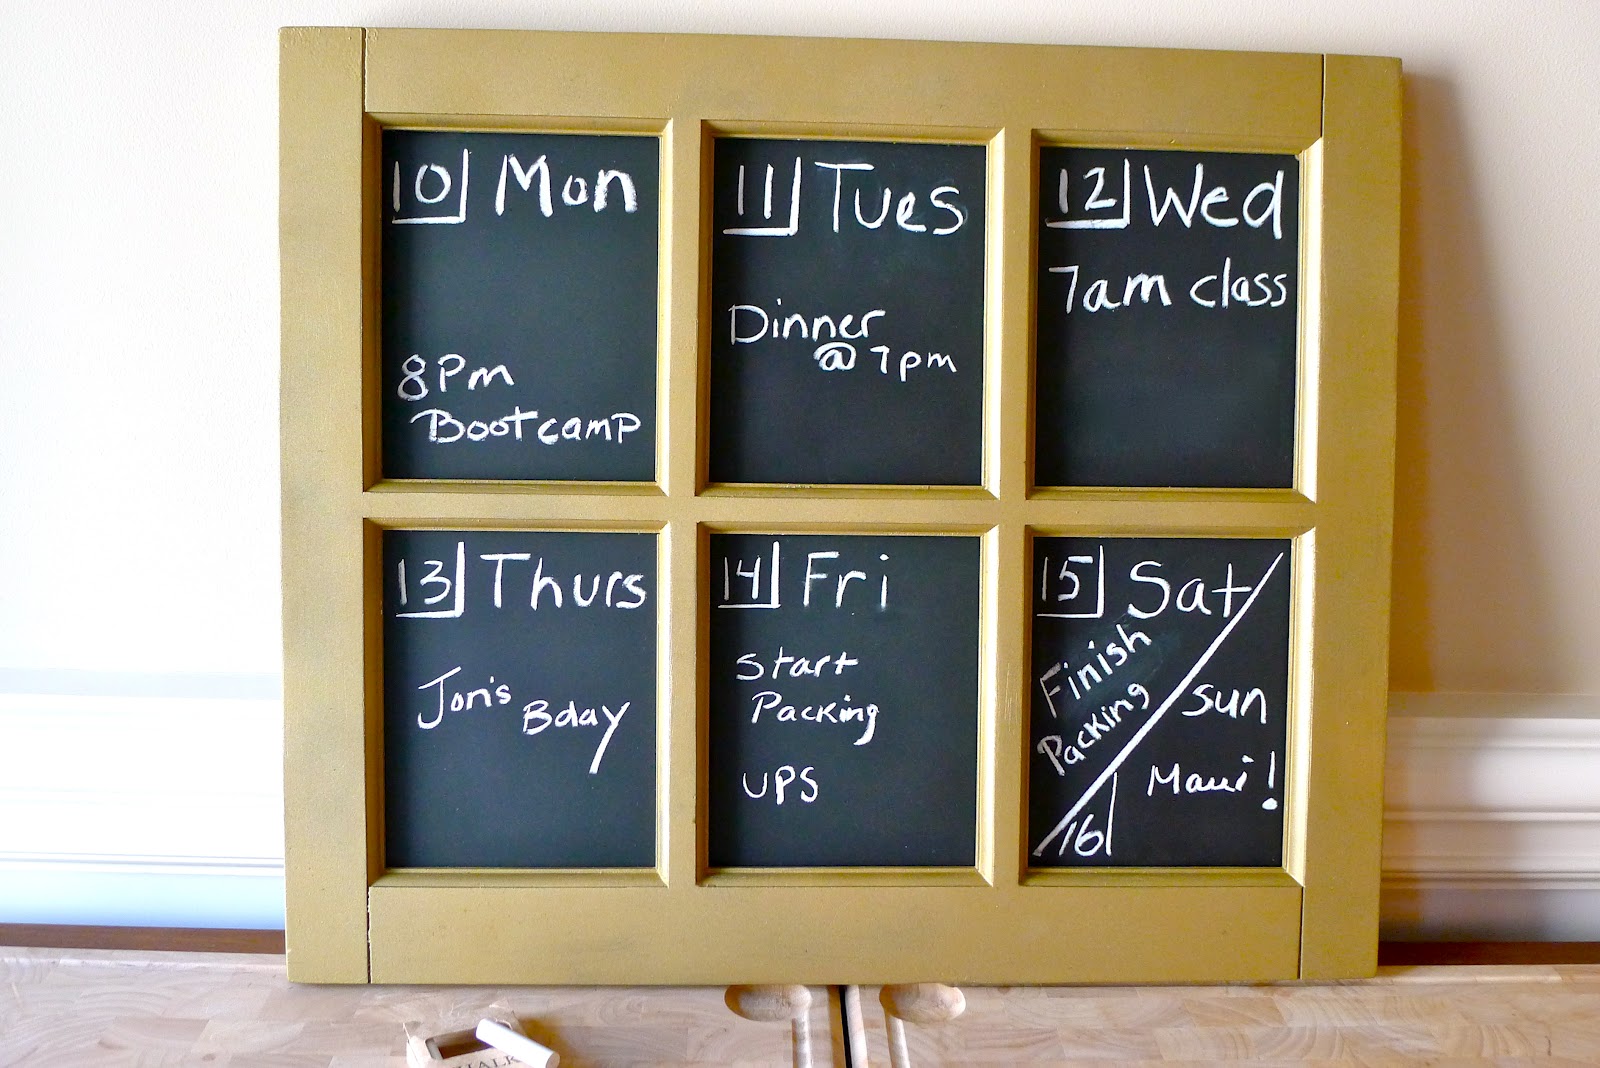 10 Mon
8Pm
Bootcamp
11 Tues
Dinner
@ 7pm
12 Wed
7am class
13 Thurs
Jon's Bday
14 Fri
Start
Packing
UPS
15 Sat
Finish
Packing
sun
Maui!
16